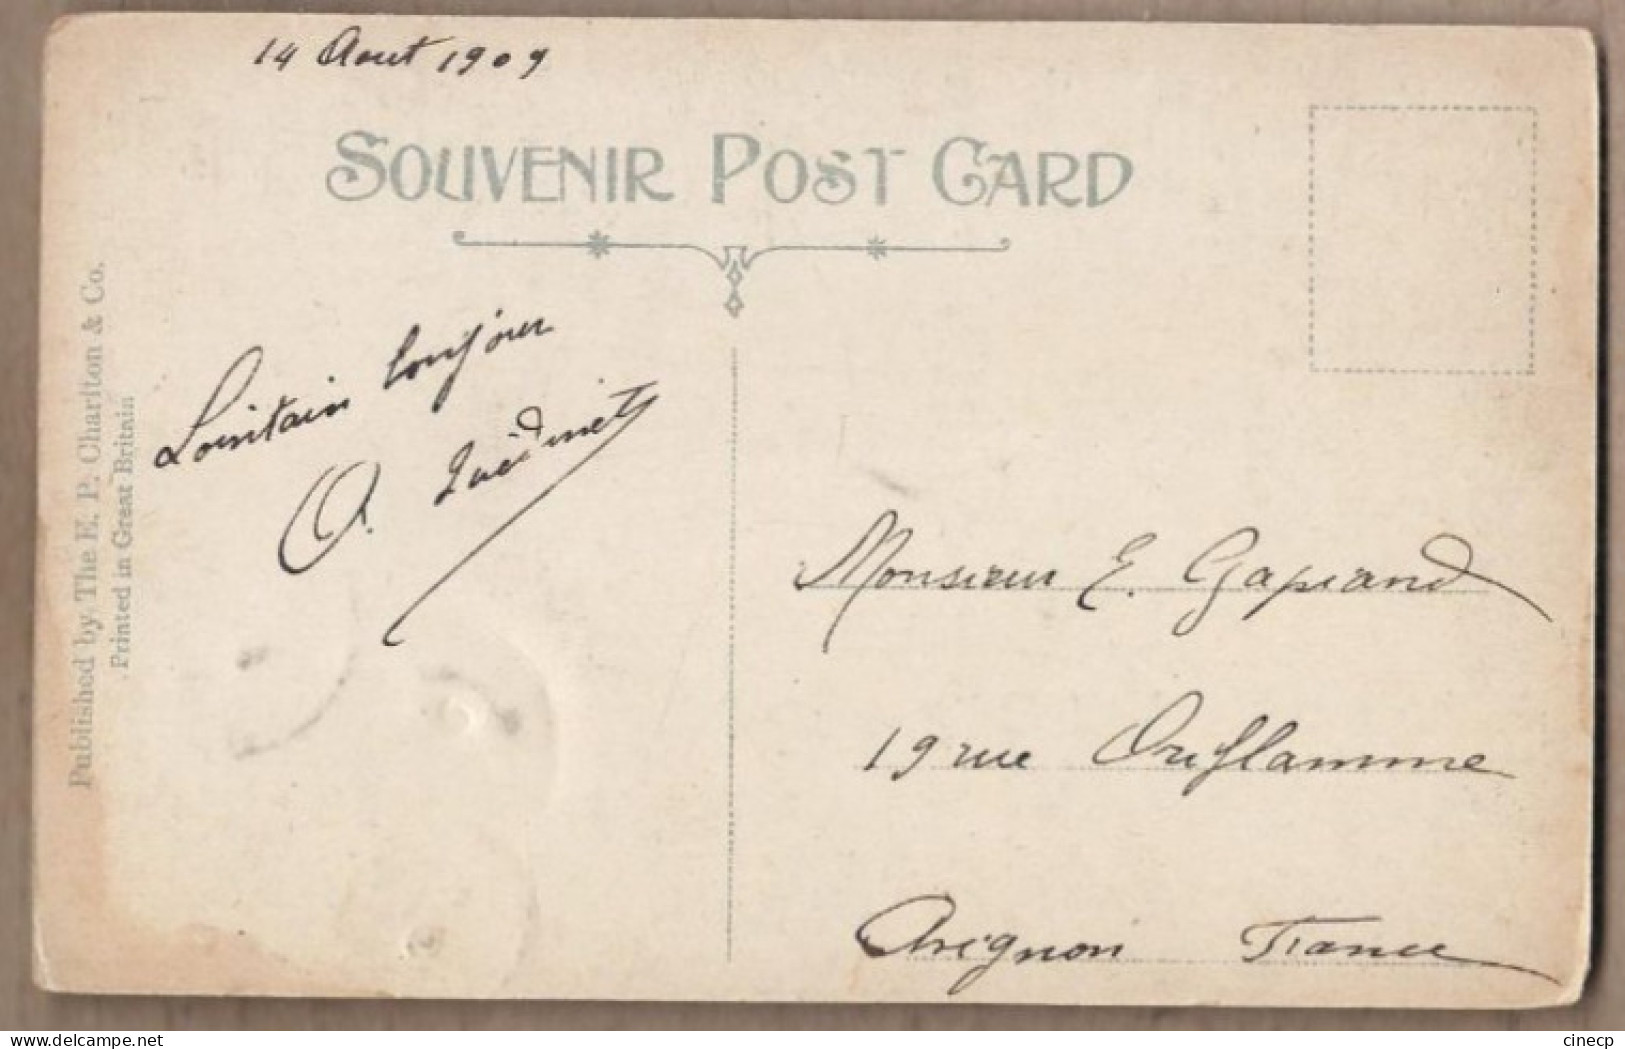 14 Aout 1909
SOUVENIR POST CARD
Published by The E. P. Charlton & Co.
Printed in Great Britain
Lointain bonjour
O.
Monsieur E. Gapiand
19 rue Oriflamme
Avignon France
delcampe.net
cinecp